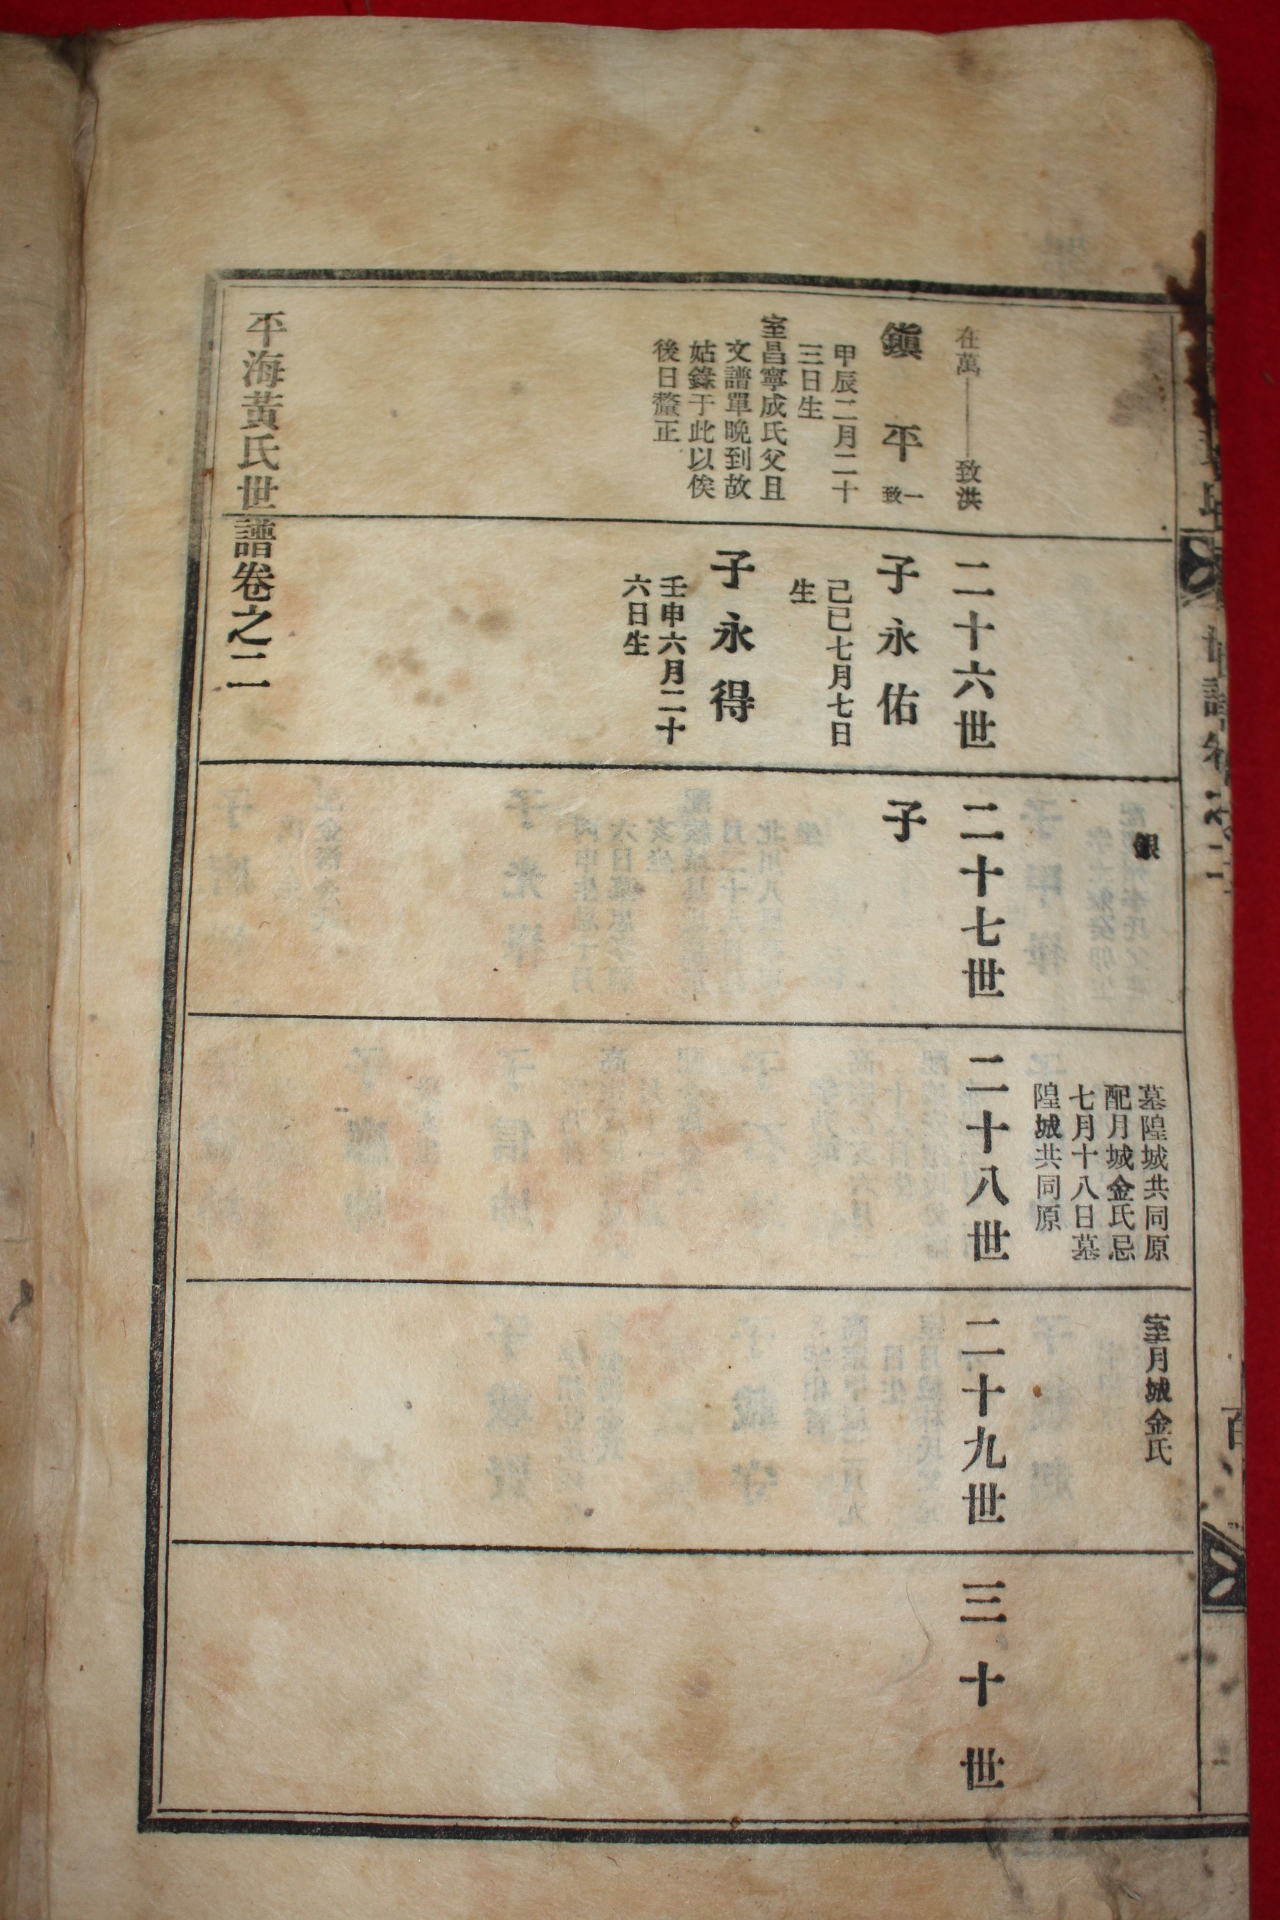 銀
墓隍城共同原
配月城金氏忌
七月十八日墓
隍城共同原
室月城金氏
在萬——致洪
鎭平
一致
甲辰二月二十
三日生
室昌寧成氏父且
文譜單晩到故
姑錄于此以俟
後日釐正
二十六世
子永佑
己巳七月七日
生
子永得
壬申六月二十
六日生
二十七世
子
二十八世
二十九世
三十世
平海黃氏世譜卷之二